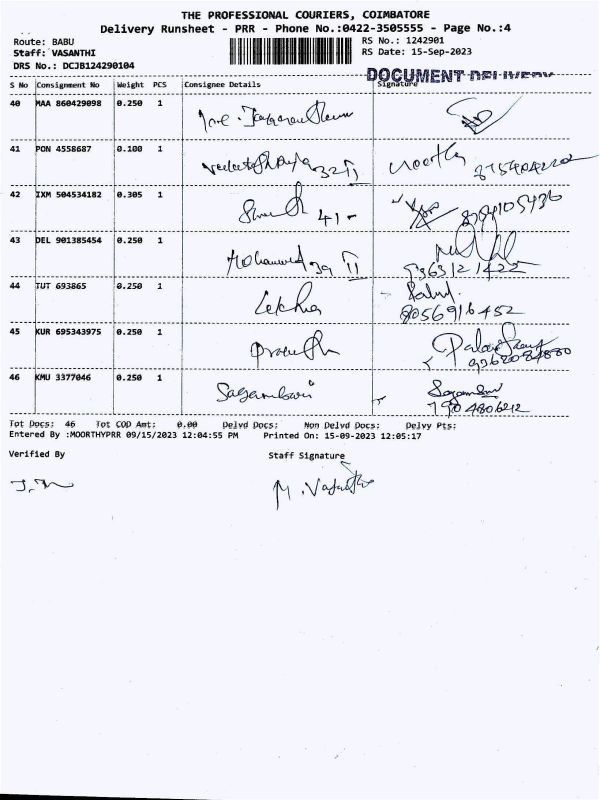 THE PROFESSIONAL COURIERS, COIMBATORE
Delivery Runsheet - PRR - Phone No.:0422-3505555 - Page No.:4
Route: BABU RS No.: 1242901
Staff: VASANTHI RS Date: 15-Sep-2023
DRS No.: DCJB124290104
DOCUMENT DELIVERY
S No Consignment No Weight PCS Consignee Details Signature
40 MAA 860429098 0.250 1
41 PON 4558687 0.100 1 Moorthy
42 IXM 504534182 0.305 1 41 -
43 DEL 901385454 0.250 1 Mohammed 39 II
44 TUT 693865 0.250 1 Lekha
8056916452
45 KUR 695343975 0.250 1
46 KMU 3377046 0.250 1
7904806212
Tot Docs: 46 Tot COD Amt: 0.00 Delvd Docs: Non Delvd Docs: Delvy Pts:
Entered By :MOORTHYPRR 09/15/2023 12:04:55 PM Printed On: 15-09-2023 12:05:17
Verified By Staff Signature
M. Vasantha